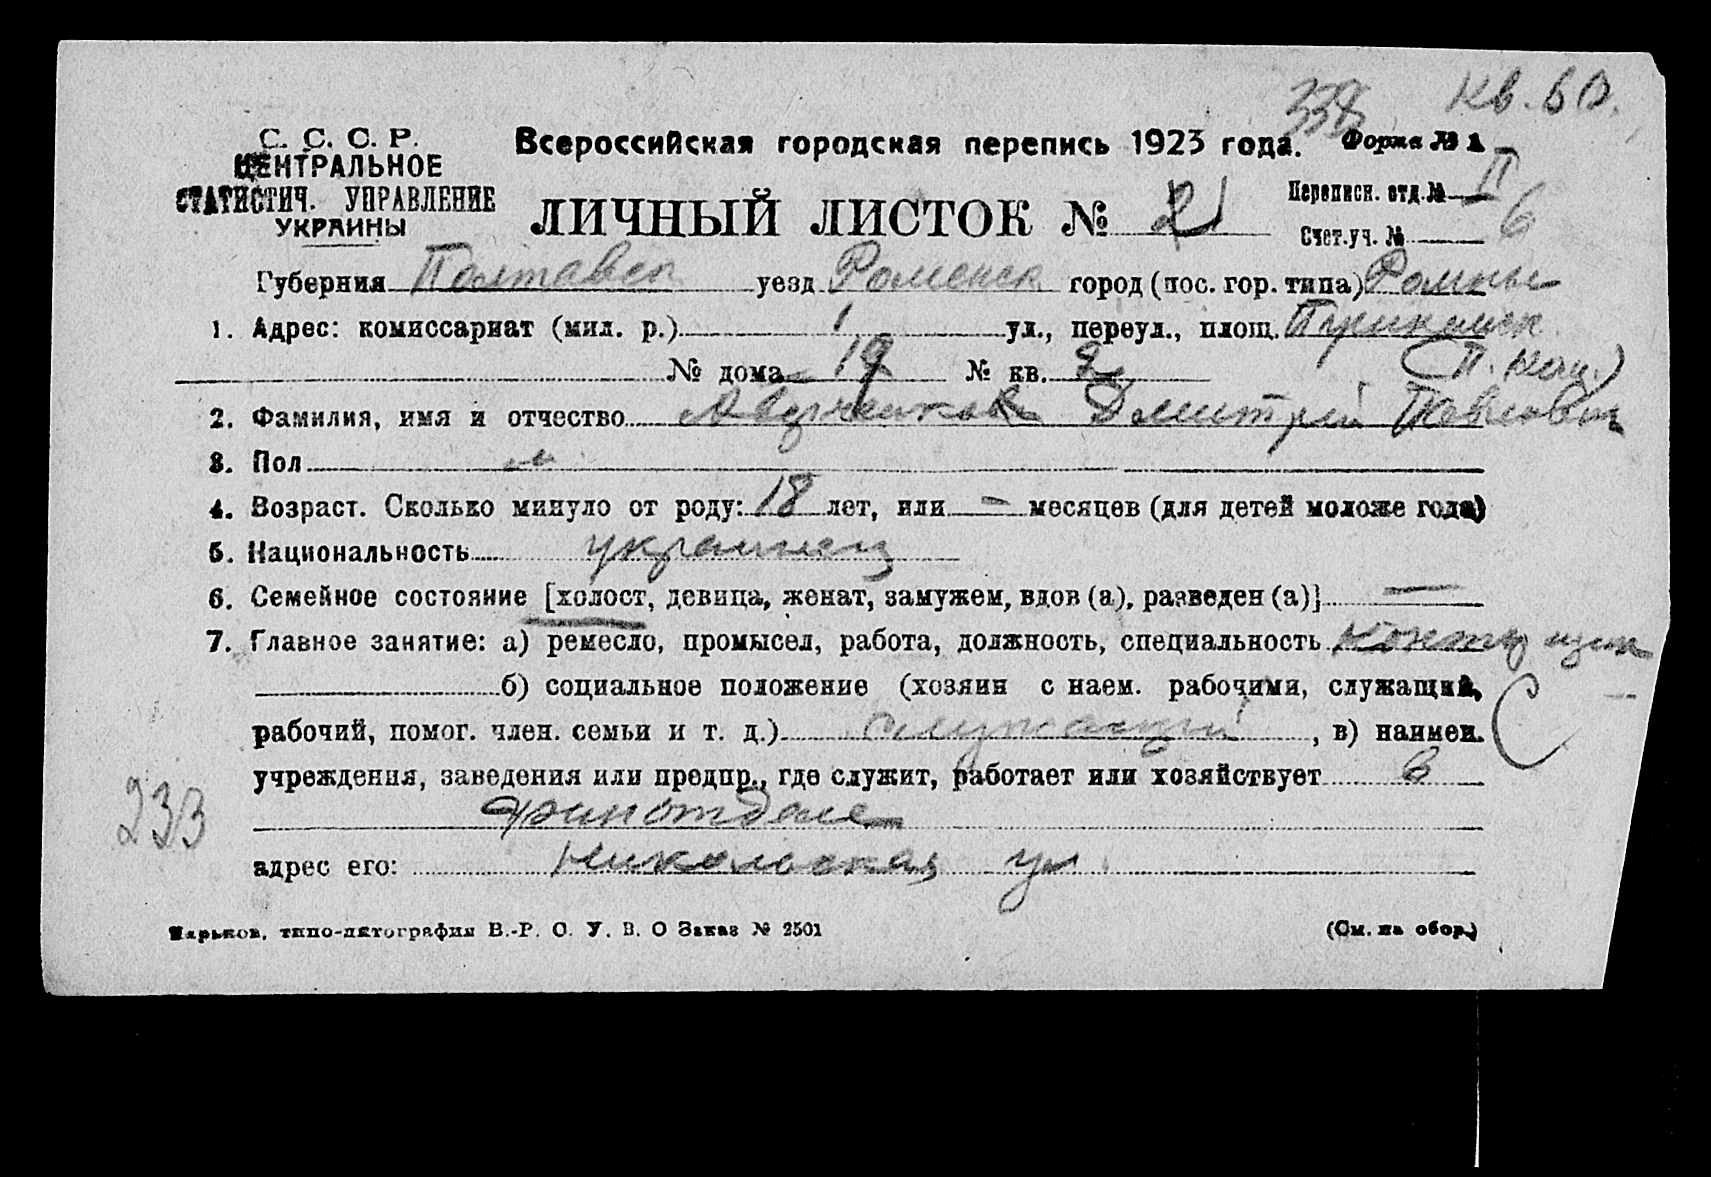 338 Кв. 60.
С. С. С. Р.
ЦЕНТРАЛЬНОЕ
СТАТИСТИЧ. УПРАВЛЕНИЕ
УКРАИНЫ
Всероссийская городская перепись 1923 года. Форма № 1
ЛИЧНЫЙ ЛИСТОК № 21
Переписн. отд. № II
Счет.уч. № 6
Губерния Полтавск уезд Роменск город (пос. гор. типа) Ромны
1. Адрес: комиссариат (мил. р.) 1 ул., переул., площ.
№ дома 19 № кв. 2
2. Фамилия, имя и отчество Дмитрий Павлович
3. Пол м
4. Возраст. Сколько минуло от роду: 18 лет, или — месяцев (для детей моложе года)
5. Национальность украинец
6. Семейное состояние [холост, девица, женат, замужем, вдов (а), разведен (а)] —
7. Главное занятие: а) ремесло, промысел, работа, должность, специальность
б) социальное положение (хозяин с наем. рабочими, служащий,
рабочий, помог. член. семьи и т. д.) служащий, в) наимен. С
учреждения, заведения или предпр., где служит, работает или хозяйствует в
233 финотделе
адрес его: Никольская ул.
Харьков, типо-литография В.-Р. С. У. В. О Заказ № 2501 (См. на обор.)